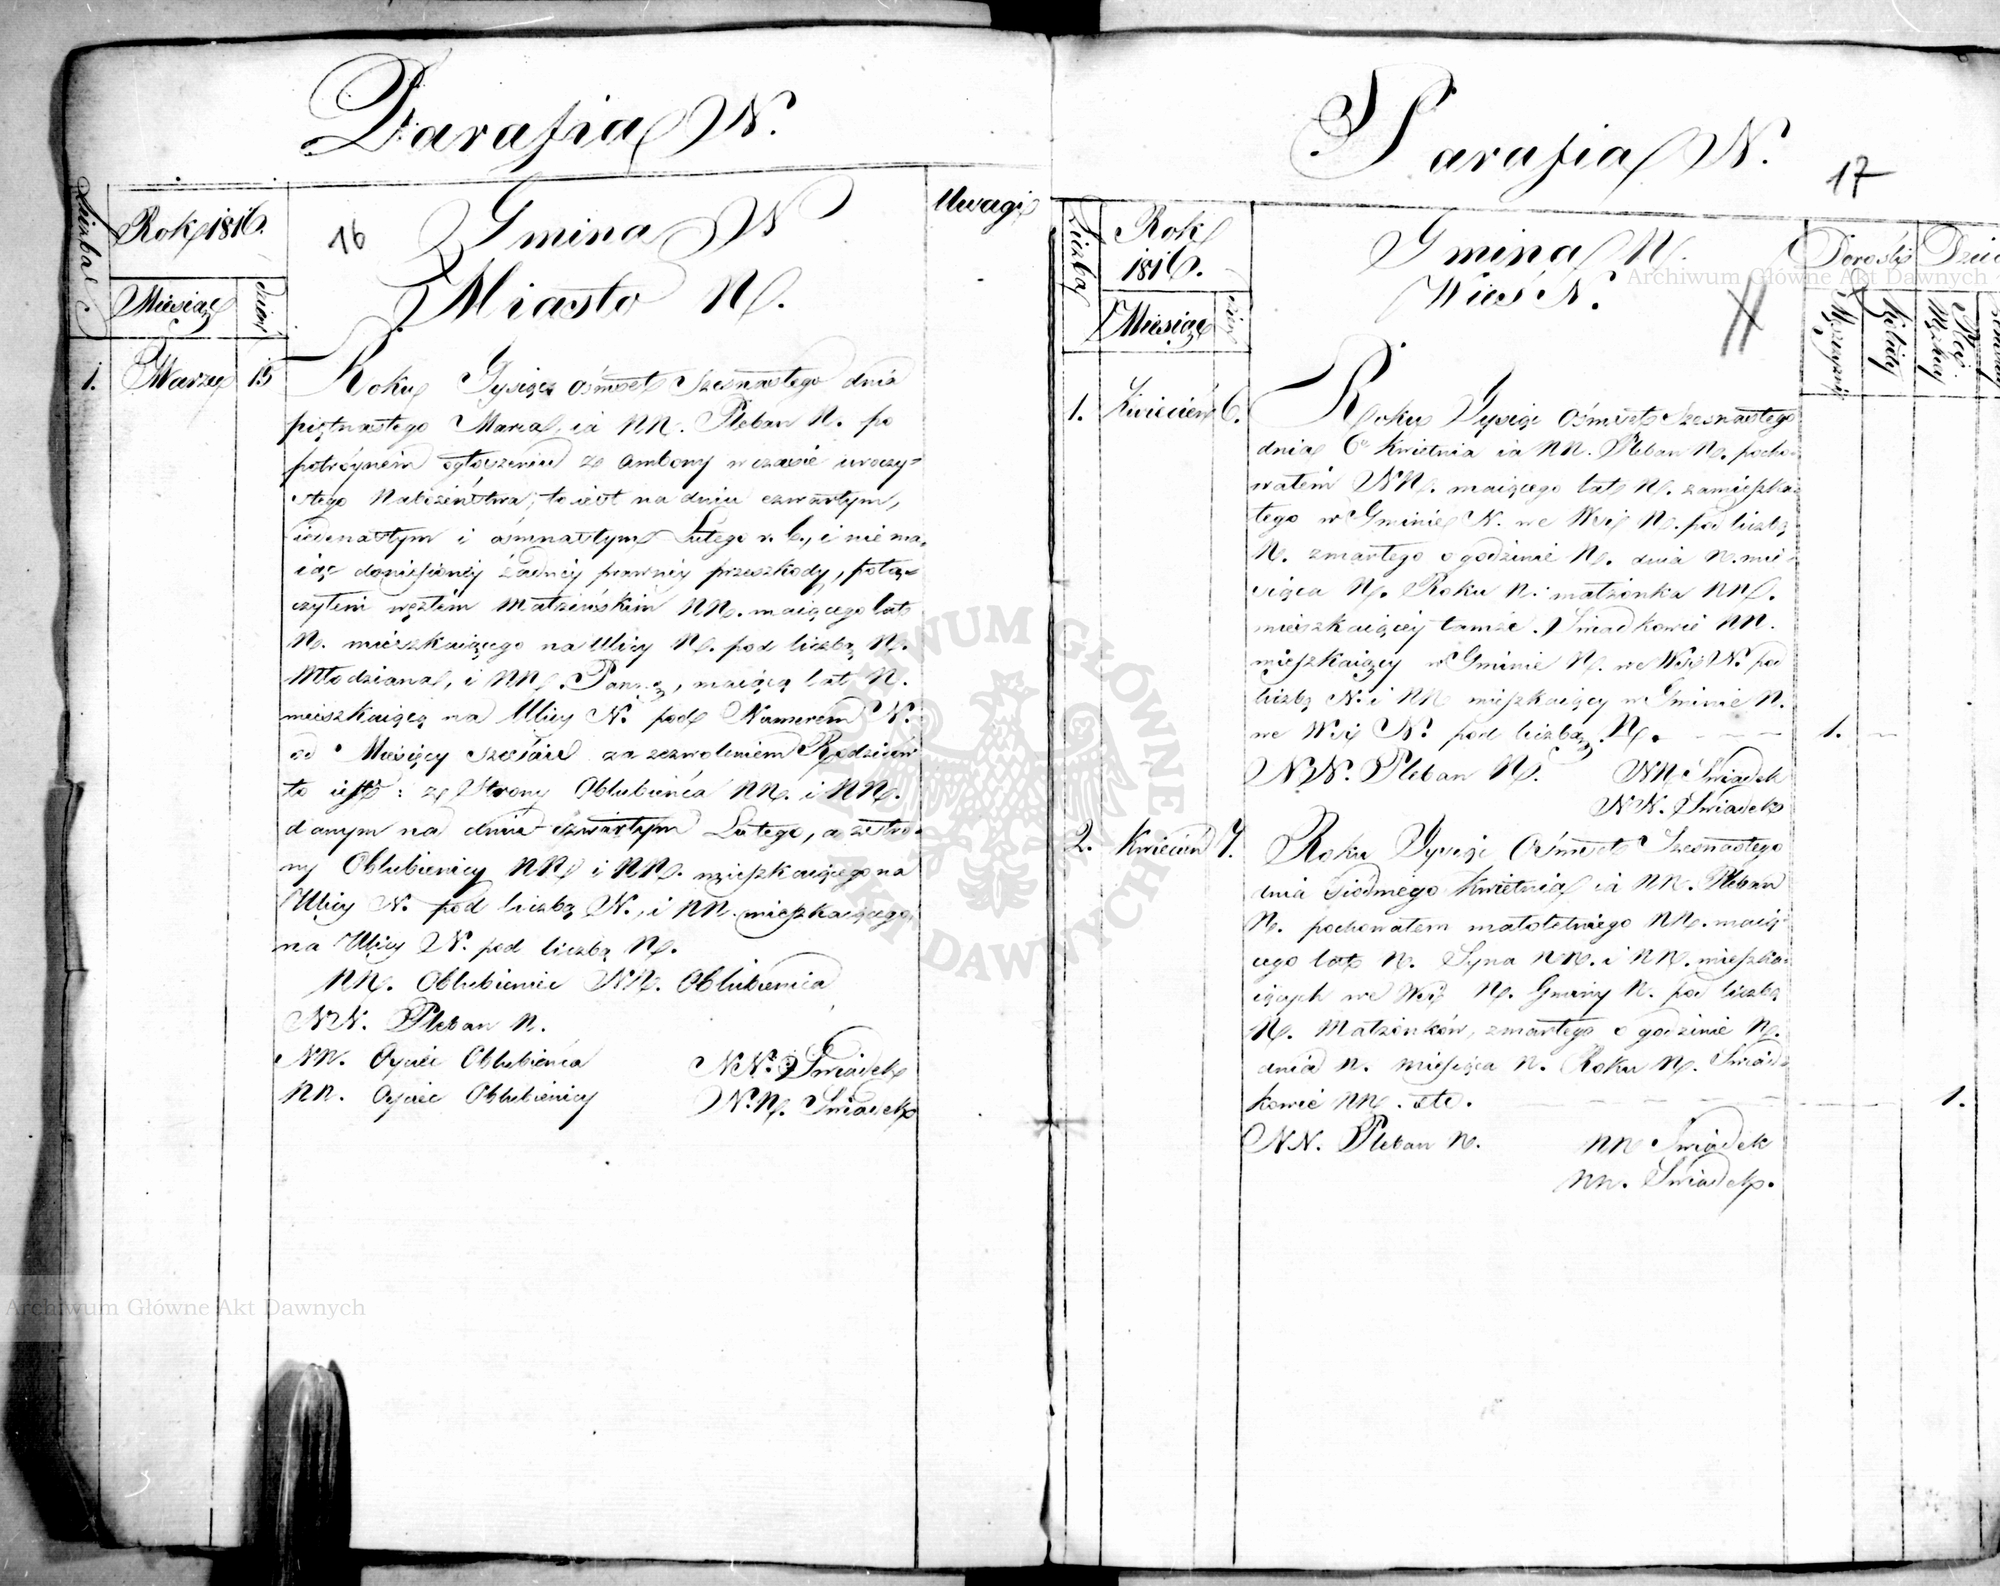 Parafia N.
Liczba
Rok 1816.
Miesiąc
Dzień
16
Gmina N
Miasto N.
Uwagi
1. Marzec 15
Roku Tysiącz ośmset szesnastego dnia
piętnastego Marca, ia NN. Pleban N. po
potróynem ogłoszeniu z Ambony w czasie uroczy=
stego Nabożeństwa; to iest na dniu czwartym,
iedenastym i ósmnastym Lutego r. b., i nie ma=
iąc doniesioney żadney prawney przeszkody, połą=
czyłem węzłem Małżeńskim NN. maiącego lat
N. mieszkaiącego na Ulicy N. pod liczbą N.
Młodziana, i NN. Pannę, maiącą lat N.
mieszkaiącą na Ulicy N. pod Numerem N.
od Miesięcy sześciu za zezwoleniem Rodziców
to iest: ze Strony Oblubieńca NN. i NN.
danym na dniu czwartym Lutego, a ze stro=
ny Oblubienicy NN. i NN. mieszkaiącego na
Ulicy N. pod liczbą N., i NN. mieszkaiącego
na Ulicy N. pod liczbą N.
NN. Oblubieniec NN. Oblubienica
NN. Pleban N.
NN. Oyciec Oblubieńca NN. Świadek
NN. Oyciec Oblubienicy N.N. Świadek
Parafia N.
17
Liczba
Rok
1816.
Miesiąc
Dzień
Gmina N.
Wieś N.
Dorośli
Mężczyzni
Kobiety
Dzieci
Płci
Męzkiej
1. Kwiecień 6.
Roku Tysiąc Ośmset Szesnastego
dnia 6o Kwietnia ia NN. Pleban N. pocho=
wałem NN. maiącego lat N. zamieszka=
łego w Gminie N. we Wsi N. pod liczbą
N. zmarłego o godzinie N. dnia N. mie=
siąca N. Roku N. małżonka NN.
mieszkaiącey tamże. Świadkowie NN.
mieszkaiący w Gminie N. we Wsi N. pod
liczbą N. i NN mieszkaiący w Gminie N.
we Wsi N. pod liczbą N. 1.
NN. Pleban N. NN Świadek
NN. Świadek
2. Kwiecień 7.
Roku Tysiąc Ośmset Szesnastego
dnia siódmego Kwietnia ia NN. Pleban
N. pochowałem małoletniego NN. maią=
cego lat N. Syna NN. i NN. mieszka=
iących we Wsi N. Gminy N. pod liczbą
N. Małżonków, zmarłego o godzinie N.
dnia N. miesiąca N. Roku N. Świad=
kowie NN. etc. 1.
NN. Pleban N. NN Świadek
NN. Świadek.
Archiwum Główne Akt Dawnych
Archiwum Główne Akt Dawnych
ARCHIWUM GŁÓWNE AKT DAWNYCH